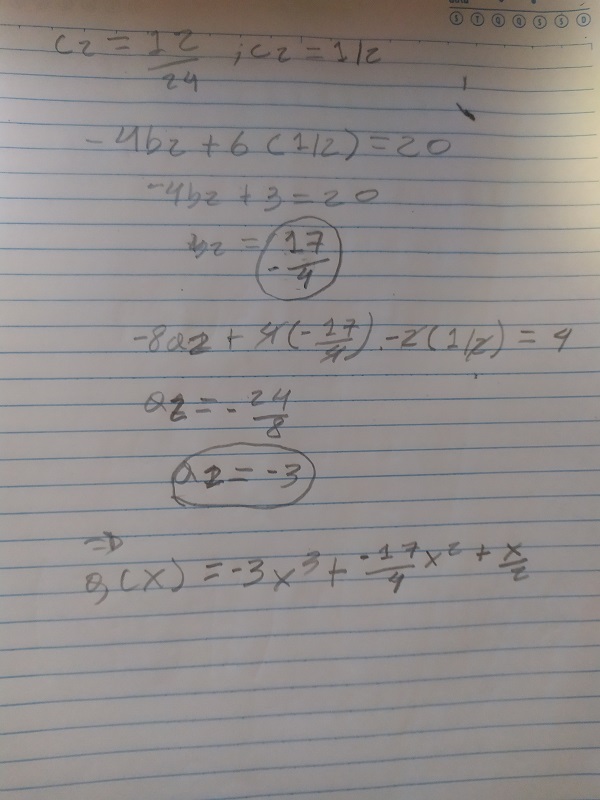 S T Q Q S S D
c2 = 12/24 ; c2 = 1/2
-4b2 + 6(1/2) = 20
-4b2 + 3 = 20
b2 = -17/4
-8a2 + 4(-17/4) - 2(1/2) = 4
a2 = -24/8
a2 = -3
⇒
q(x) = -3x³ + -17/4 x² + x/2